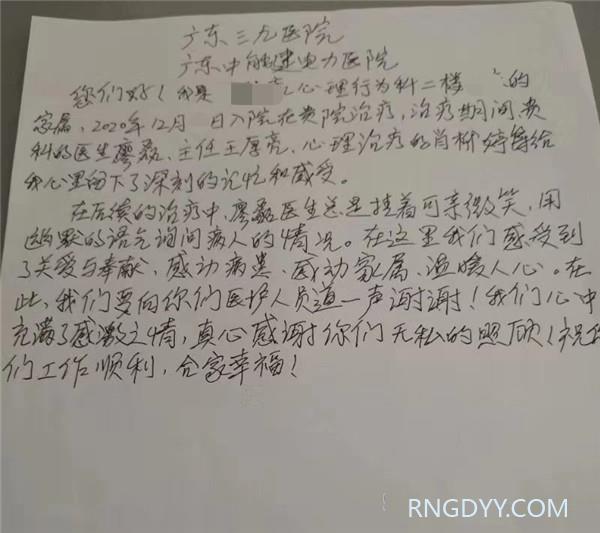 广东三九医院
广东中能建电力医院
您们好！我是 心理行为科二楼 的
家属，2020年12月 日入院在贵院治疗，治疗期间贵
科的医生廖磊、主任王厚亮、心理治疗的肖彬婷等给
我心里留下了深刻的记忆和感受。
在后续的治疗中，廖磊医生总是挂着可亲微笑，用
幽默的语气询问病人的情况。在这里我们感受到
了关爱与奉献，感动病患、感动家属、温暖人心。在
此，我们要向你们医护人员道一声谢谢！我们心中
充满了感激之情，真心感谢你们无私的照顾！祝你
们工作顺利，合家幸福！
RNGDYY.COM